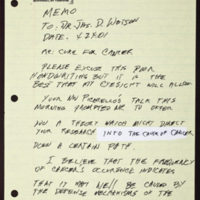 MEMO
TO: DR JAS. D. WATSON
DATE. 4.29.01
RE: CURE FOR CANCER
PLEASE EXCUSE THIS POOR
HANDWRITING BUT IT IS THE
BEST THAT MY EYESIGHT WILL ALLOW.
YOUR TALK THIS
MORNING PROMPTED ME TO OFFER
YOU A THEORY WHICH MIGHT DIRECT
YOUR RESEARCH INTO THE CAUSE OF CANCER
DOWN A CERTAIN PATH.
I BELIEVE THAT THE FREQUENCY
OF CANCER'S OCCURANCE INDICATES
THAT IT MAY WELL BE CAUSED BY
THE DEFENSE MECHANISMS OF THE